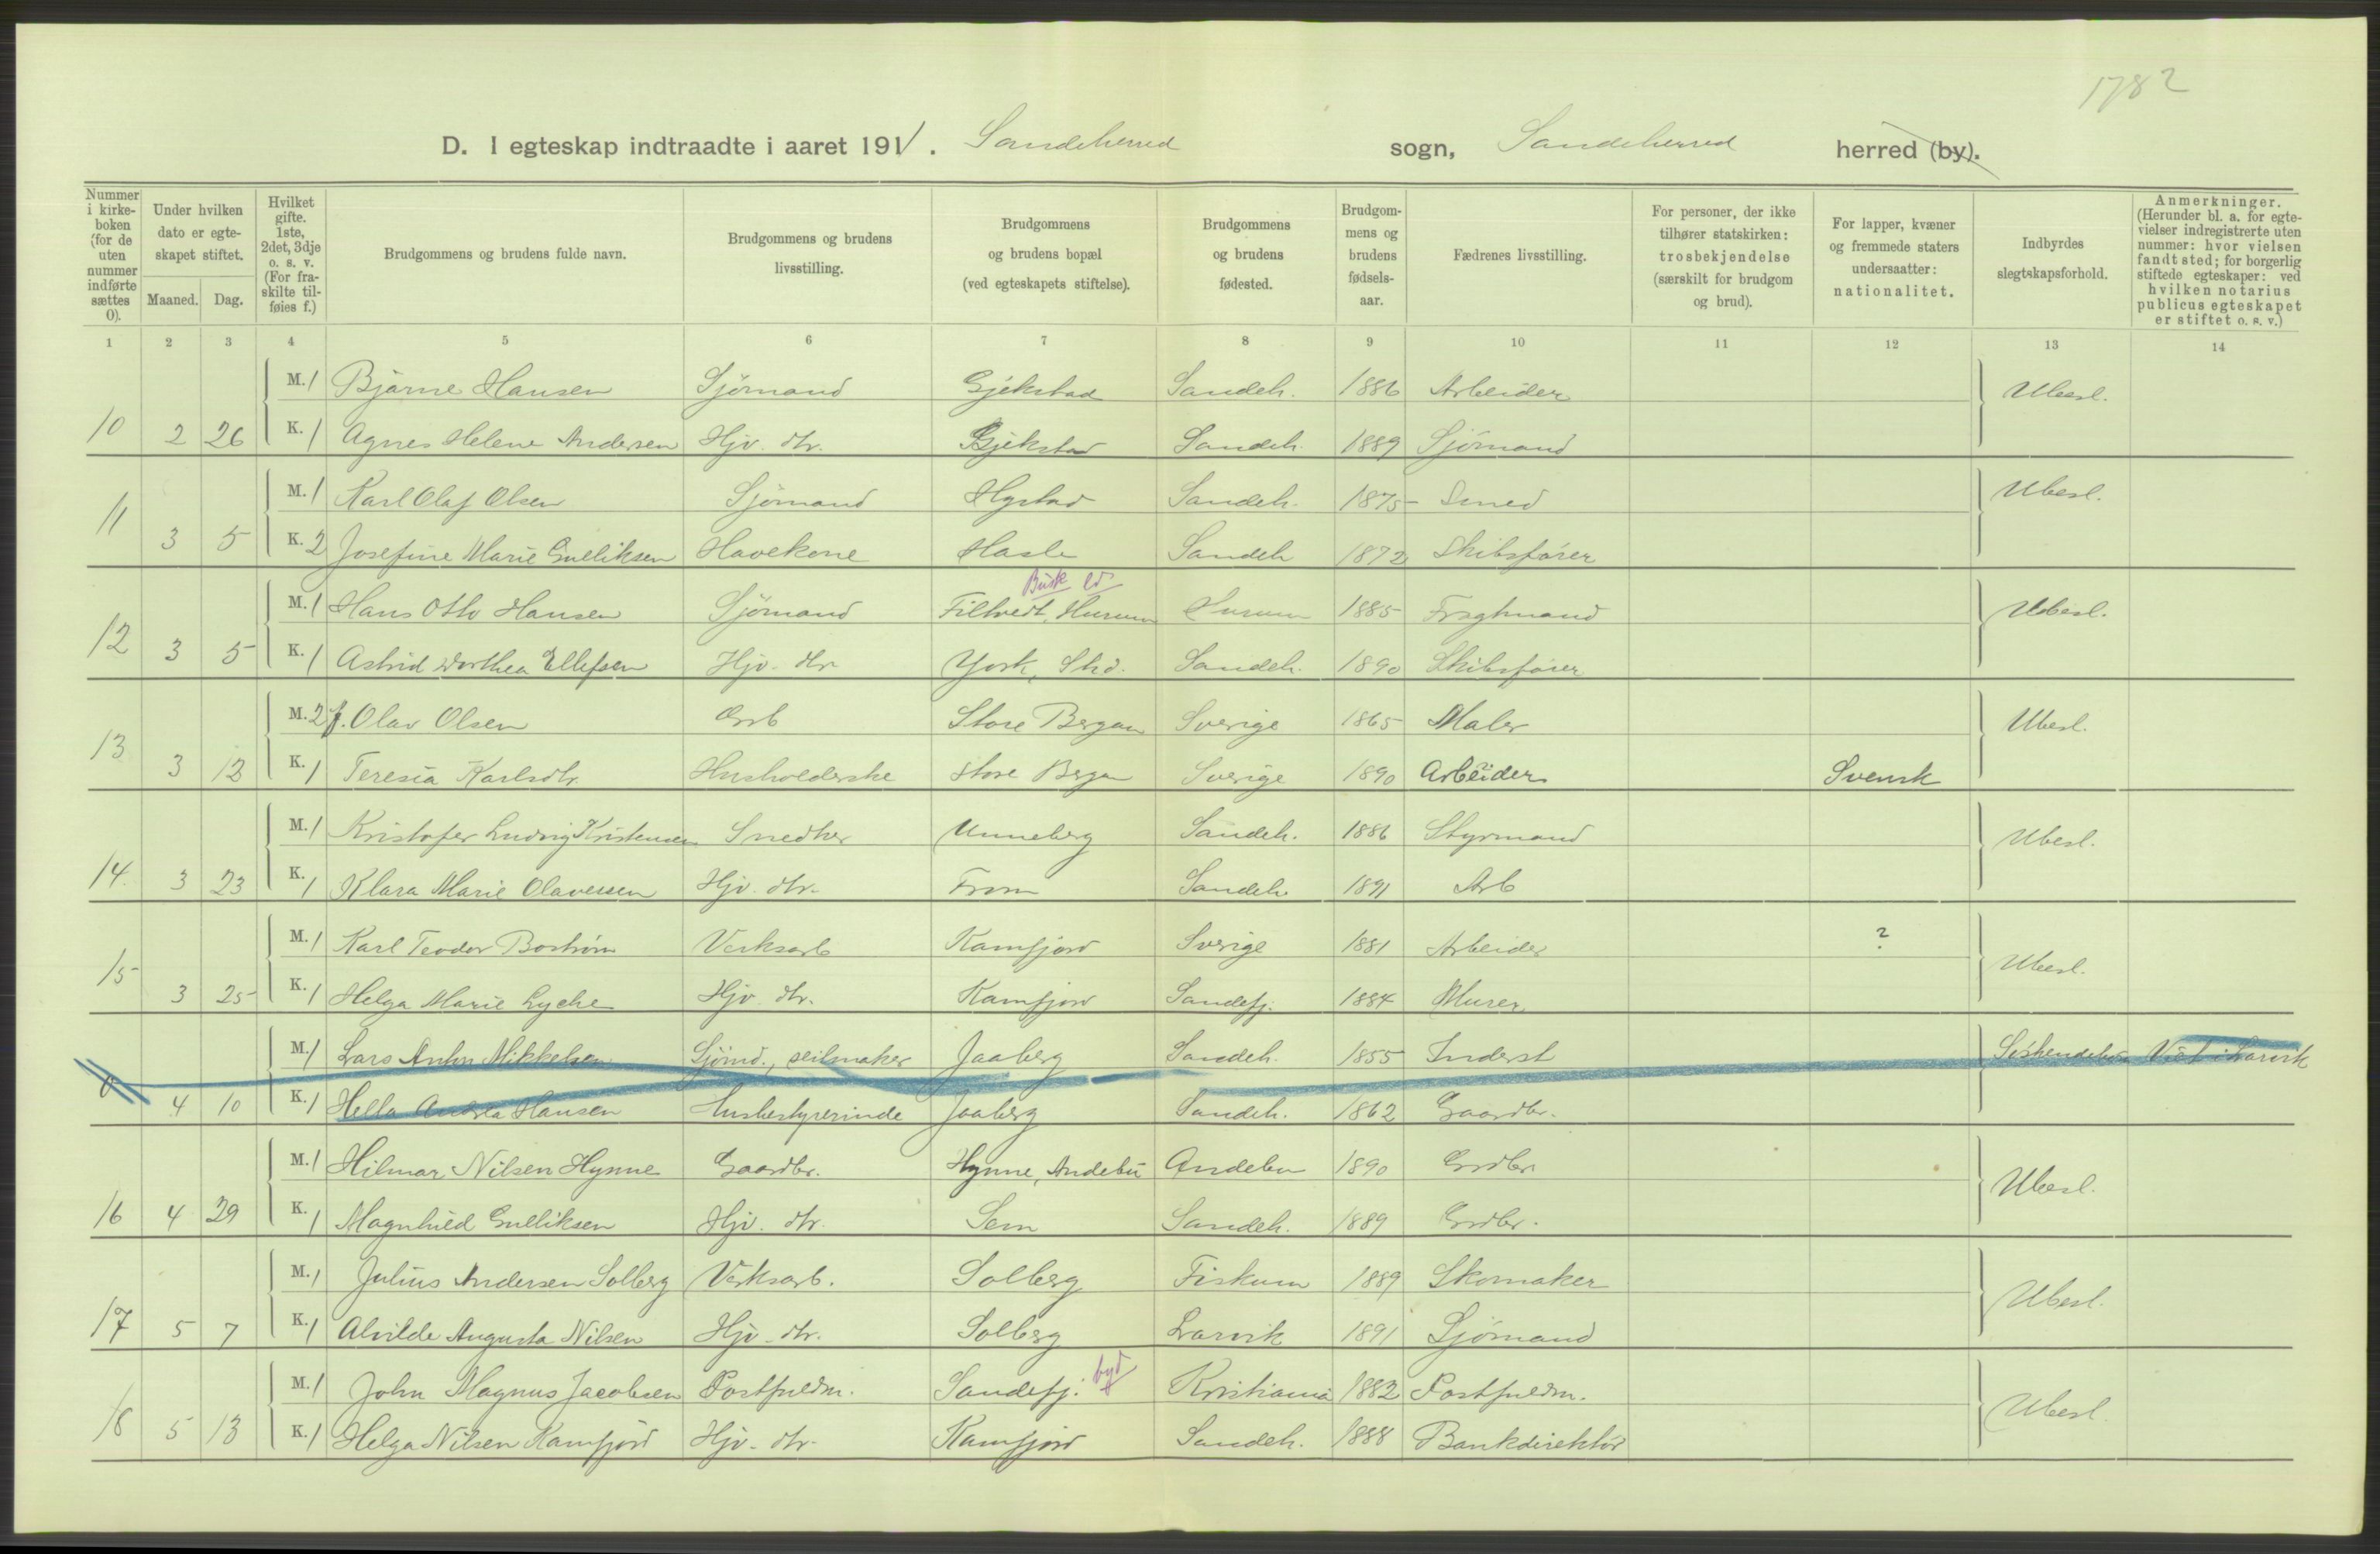 1782
D. I egteskap indtraadte i aaret 1911. Sandeherred sogn, Sandeherred herred (by).
Nummer i kirkeboken (for de uten nummer indførte sættes 0).
Under hvilken dato er egteskapet stiftet.
Maaned. Dag.
Hvilket gifte. 1ste, 2det, 3dje o. s. v. (For fraskilte tilføies f.)
Brudgommens og brudens fulde navn.
Brudgommens og brudens livsstilling.
Brudgommens og brudens bopæl (ved egteskapets stiftelse).
Brudgommens og brudens fødested.
Brudgommens og brudens fødselsaar.
Fædrenes livsstilling.
For personer, der ikke tilhører statskirken: trosbekjendelse (særskilt for brudgom og brud).
For lapper, kvæner og fremmede staters undersaatter: nationalitet.
Indbyrdes slegtskapsforhold.
Anmerkninger. (Herunder bl. a. for egtevielser indregistrerte uten nummer: hvor vielsen fandt sted; for borgerlig stiftede egteskaper: ved hvilken notarius publicus egteskapet er stiftet o. s. v.)
1 2 3 4 5 6 7 8 9 10 11 12 13 14
M. 1 Bjarne Hansen Sjømand Gjekstad Sandeh. 1886 Arbeider Ubesl.
10 2 26 K. 1 Agnes Helene Andersen Hjv. dtr. Gjekstad Sandeh. 1889 Sjömand
M. 1 Karl Olaf Olsen Sjømand Hystad Sandeh. 1875 Smed Ubesl.
11 3 5 K. 2 Josefine Marie Gulliksen Havekone Hasle Sandeh 1872 Skibsfører
Busk ld
M. 1 Hans Otto Hansen Sjömand Filtvedt, Hurum Hurum 1885 Fragtmand Ubesl.
12 3 5 K. 1 Astrid Dorthea Ellefsen Hjv. dtr York, Shd. Sandeh. 1890 Skibsfører
M. 2 f. Olav Olsen Arb Store Bergan Sverige 1865 Maler Ubesl.
13 3 12 K. 1 Teresia Karlsdtr. Husholderske Store Bergan Sverige 1890 Arbeider Svensk
M. 1 Kristofer Ludvig Kristensen Snedker Unneberg Sandeh. 1886 Styrmand Ubesl.
14. 3 23 K. 1 Klara Marie Olavessen Hjv. dtr. From Sandeh. 1891 Arb
M. 1 Karl Teodor Boström Verksarb Kamfjord Sverige 1881 Arbeider ? Ubesl.
15 3 25 K. 1 Helga Marie Lyche Hjv. dtr. Kamfjord Sandefj. 1884 Murer
M. 1 Lars Anton Mikkelsen Sjömd., seilmaker Jaaberg Sandeh. 1855 Inderst Söskendebarn Viet i Larvik
0 4 10 K. 1 Hella Andrea Hansen Husbestyrerinde Jaaberg Sandeh. 1862 Gaardbr.
M. 1 Hilmar Nilsen Hynne Gaardbr. Hynne, Andebu Andebu 1890 Grdbr. Ubesl.
16 4 29 K. 1 Magnhild Gulliksen Hjv. dtr. Sem Sandeh. 1889 Grdbr.
M. 1 Julius Andersen Solberg Verksarb. Solberg Fiskum 1889 Skomaker Ubesl.
17 5 7 K. 1 Alvilde Augusta Nilsen Hjv. dtr. Solberg Larvik 1891 Sjömand
byd
M. 1 John Magnus Jacobsen Postfuldm. Sandefj. Kristiania 1882 Postfuldm. Ubesl.
18 5 13 K. 1 Helga Nilsen Kamfjord Hjv. dtr. Kamfjord Sandeh. 1888 Bankdirektör